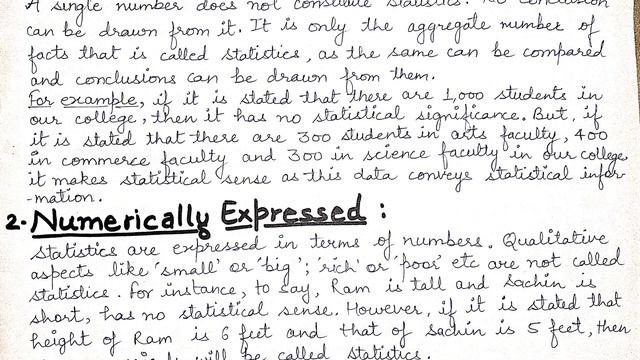 A single number does not constitute statistics. No conclusion
can be drawn from it. It is only the aggregate number of
facts that is called statistics, as the same can be compared
and conclusions can be drawn from them.
For example, if it is stated that there are 1,000 students in
our college, then it has no statistical significance. But, if
it is stated that there are 300 students in arts faculty, 400
in commerce faculty and 300 in science faculty in our college,
it makes statistical sense as this data conveys statistical infor-
-mation.
2. Numerically Expressed :
Statistics are expressed in terms of numbers. Qualitative
aspects like 'small' or 'big'; 'rich' or 'poor' etc are not called
statistics. For instance, to say, Ram is tall and Sachin is
short, has no statistical sense. However, if it is stated that
height of Ram is 6 feet and that of Sachin is 5 feet, then
will be called statistics.